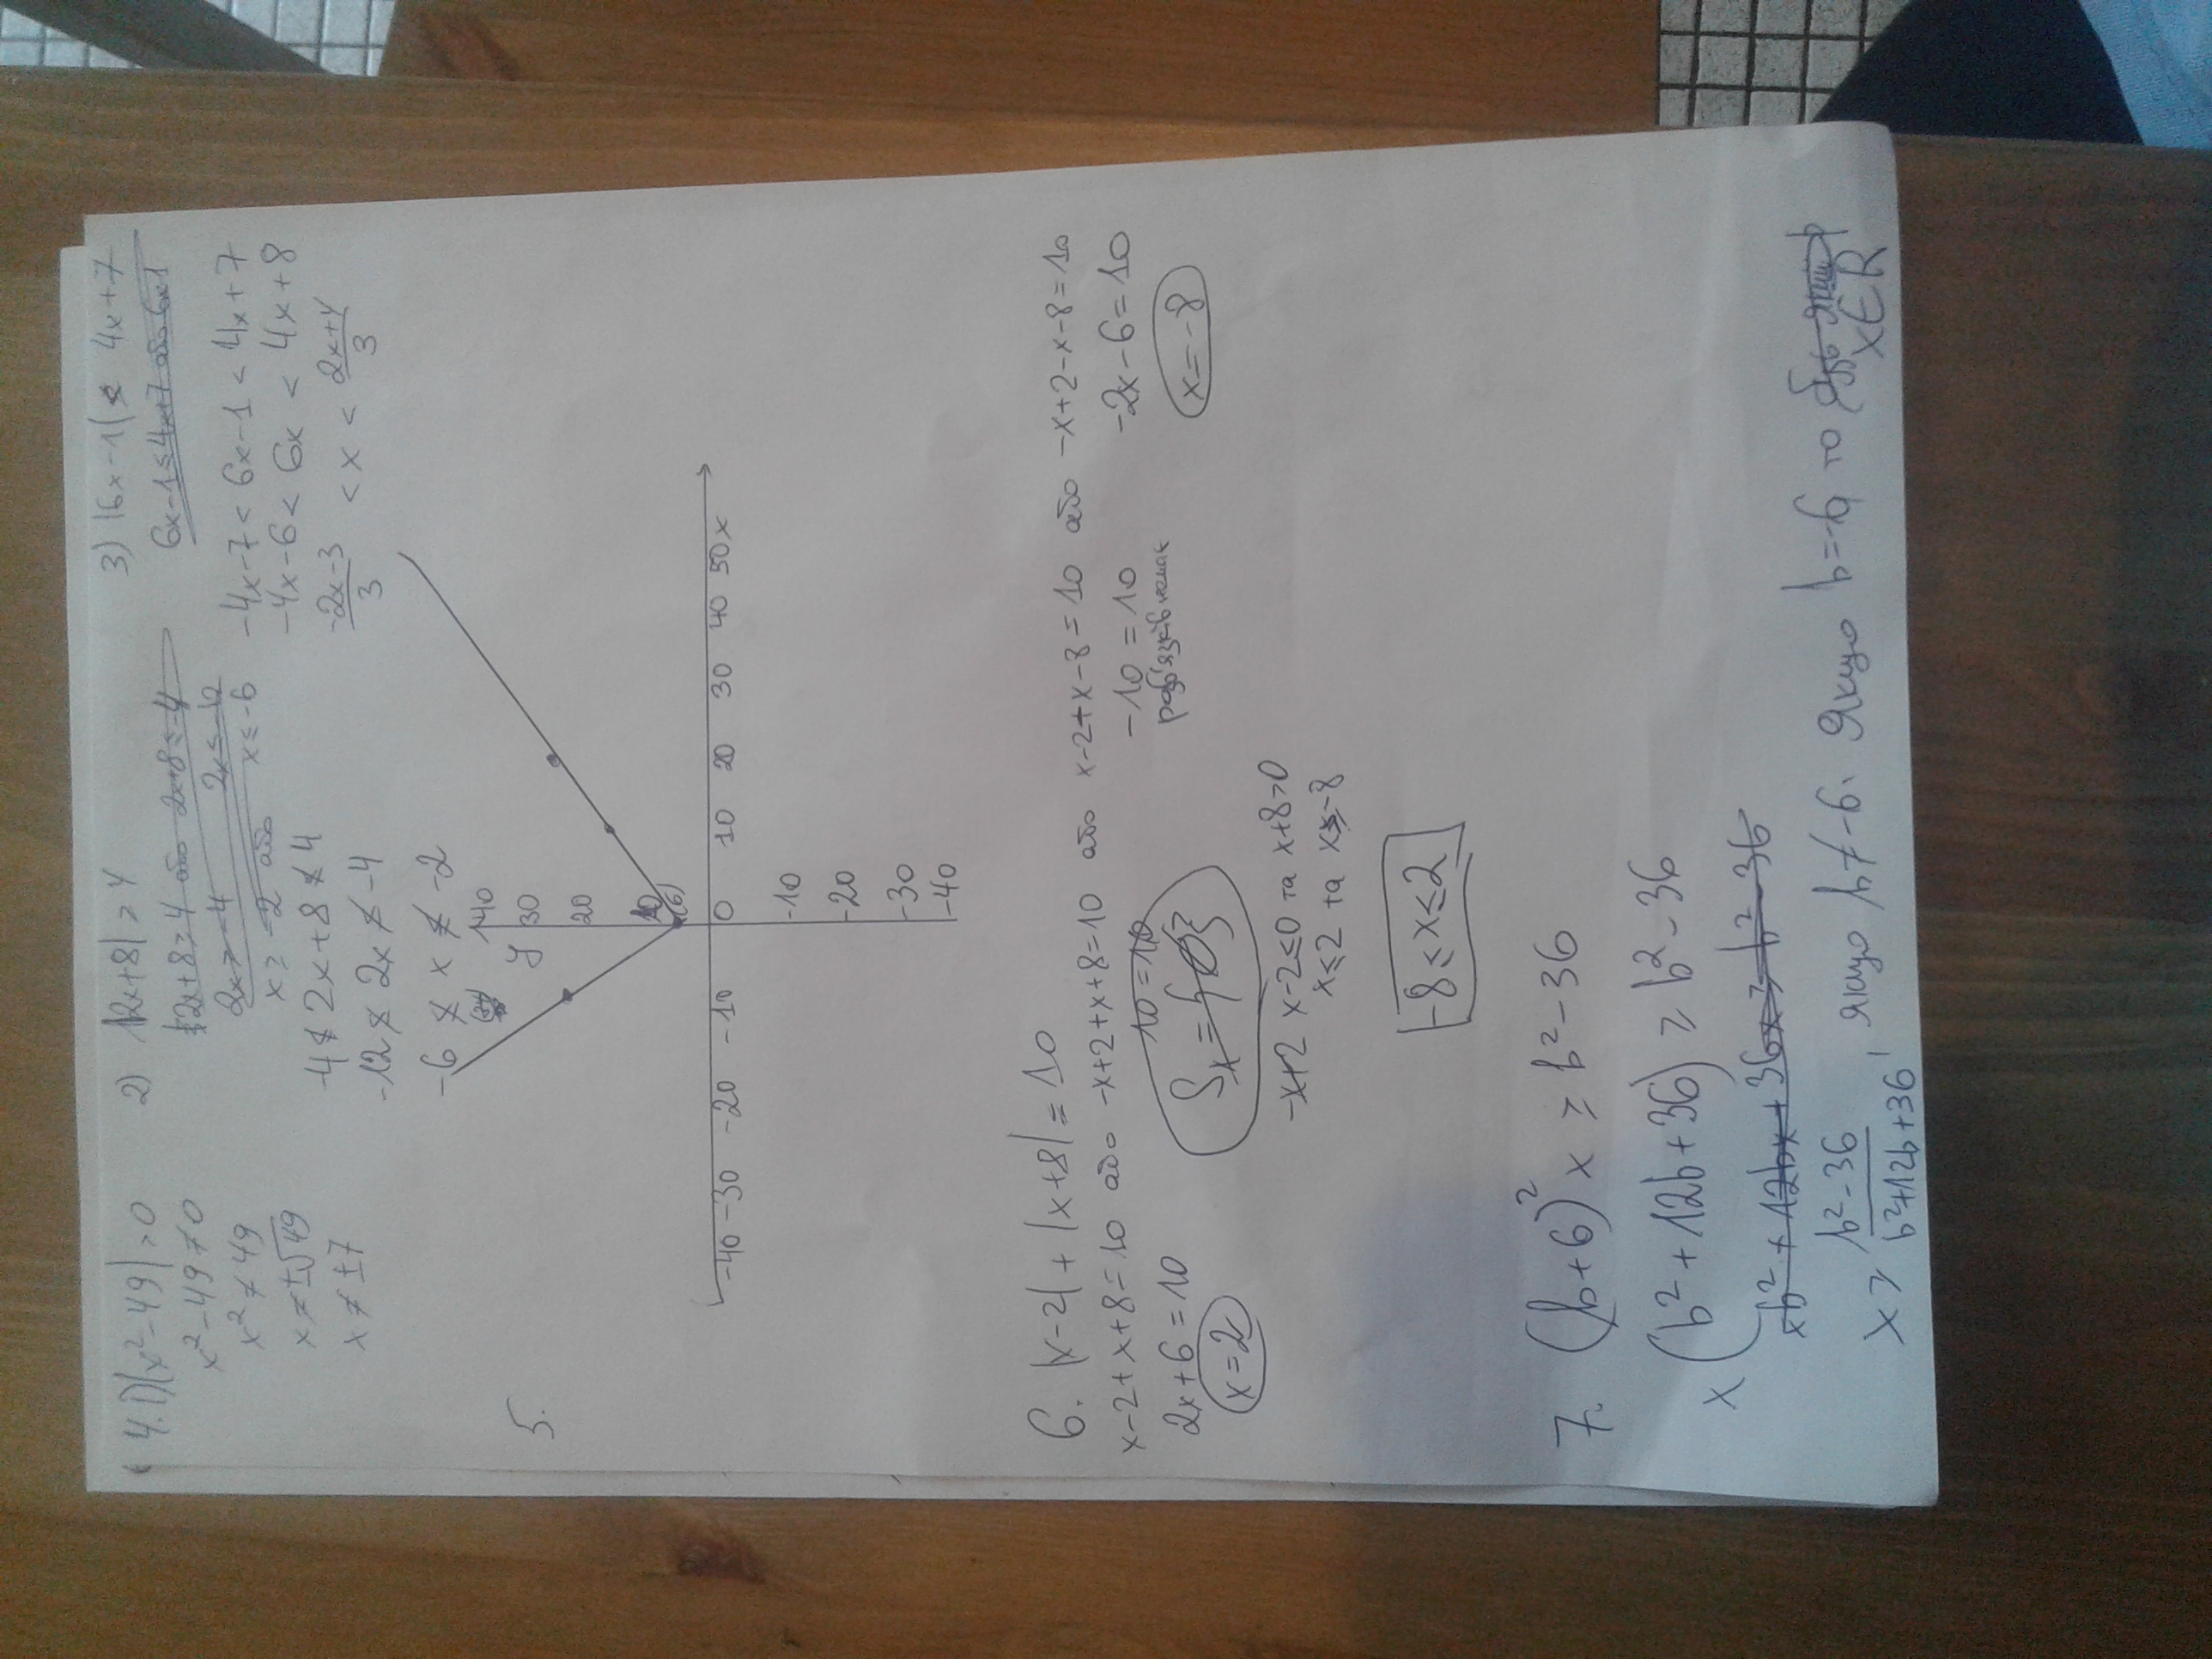 4. 1) |x²-49| > 0
x²-49≠0
x²≠49
x≠±√49
x≠±7
2) |2x+8| ≥ 4
2x+8≥4 або 2x+8≤-4
2x≥-4 2x≤-12
x≥-2 або x≤-6
-4≮2x+8≮4
-12≮2x≮-4
-6≮x≮-2
3) |6x-1| < 4x+7
6x-1≤4x+7 або 6x-1
-4x-7 < 6x-1 < 4x+7
-4x-6 < 6x < 4x+8
(-2x-3)/3 < x < (2x+4)/3
5.
y
40
30
20
10
(6)
-40 -30 -20 -10 0 10 20 30 40 50 x
-10
-20
-30
-40
6. |x-2| + |x+8| = 10
x-2+x+8=10 або -x+2+x+8=10 або x-2+x-8=10 або -x+2-x-8=10
2x+6=10 10=10 -10=10 -2x-6=10
x=2 розв'язків немає x=-8
-x+2 x-2≤0 та x+8≥0
x≤2 та x≥-8
-8≤x≤2
7. (b+6)²x ≥ b²-36
x(b²+12b+36) ≥ b²-36
xb²+12bx+36x≥b²-36
x ≥ (b²-36)/(b²+12b+36), якщо b≠-6. Якщо b=-6, то
x∈R